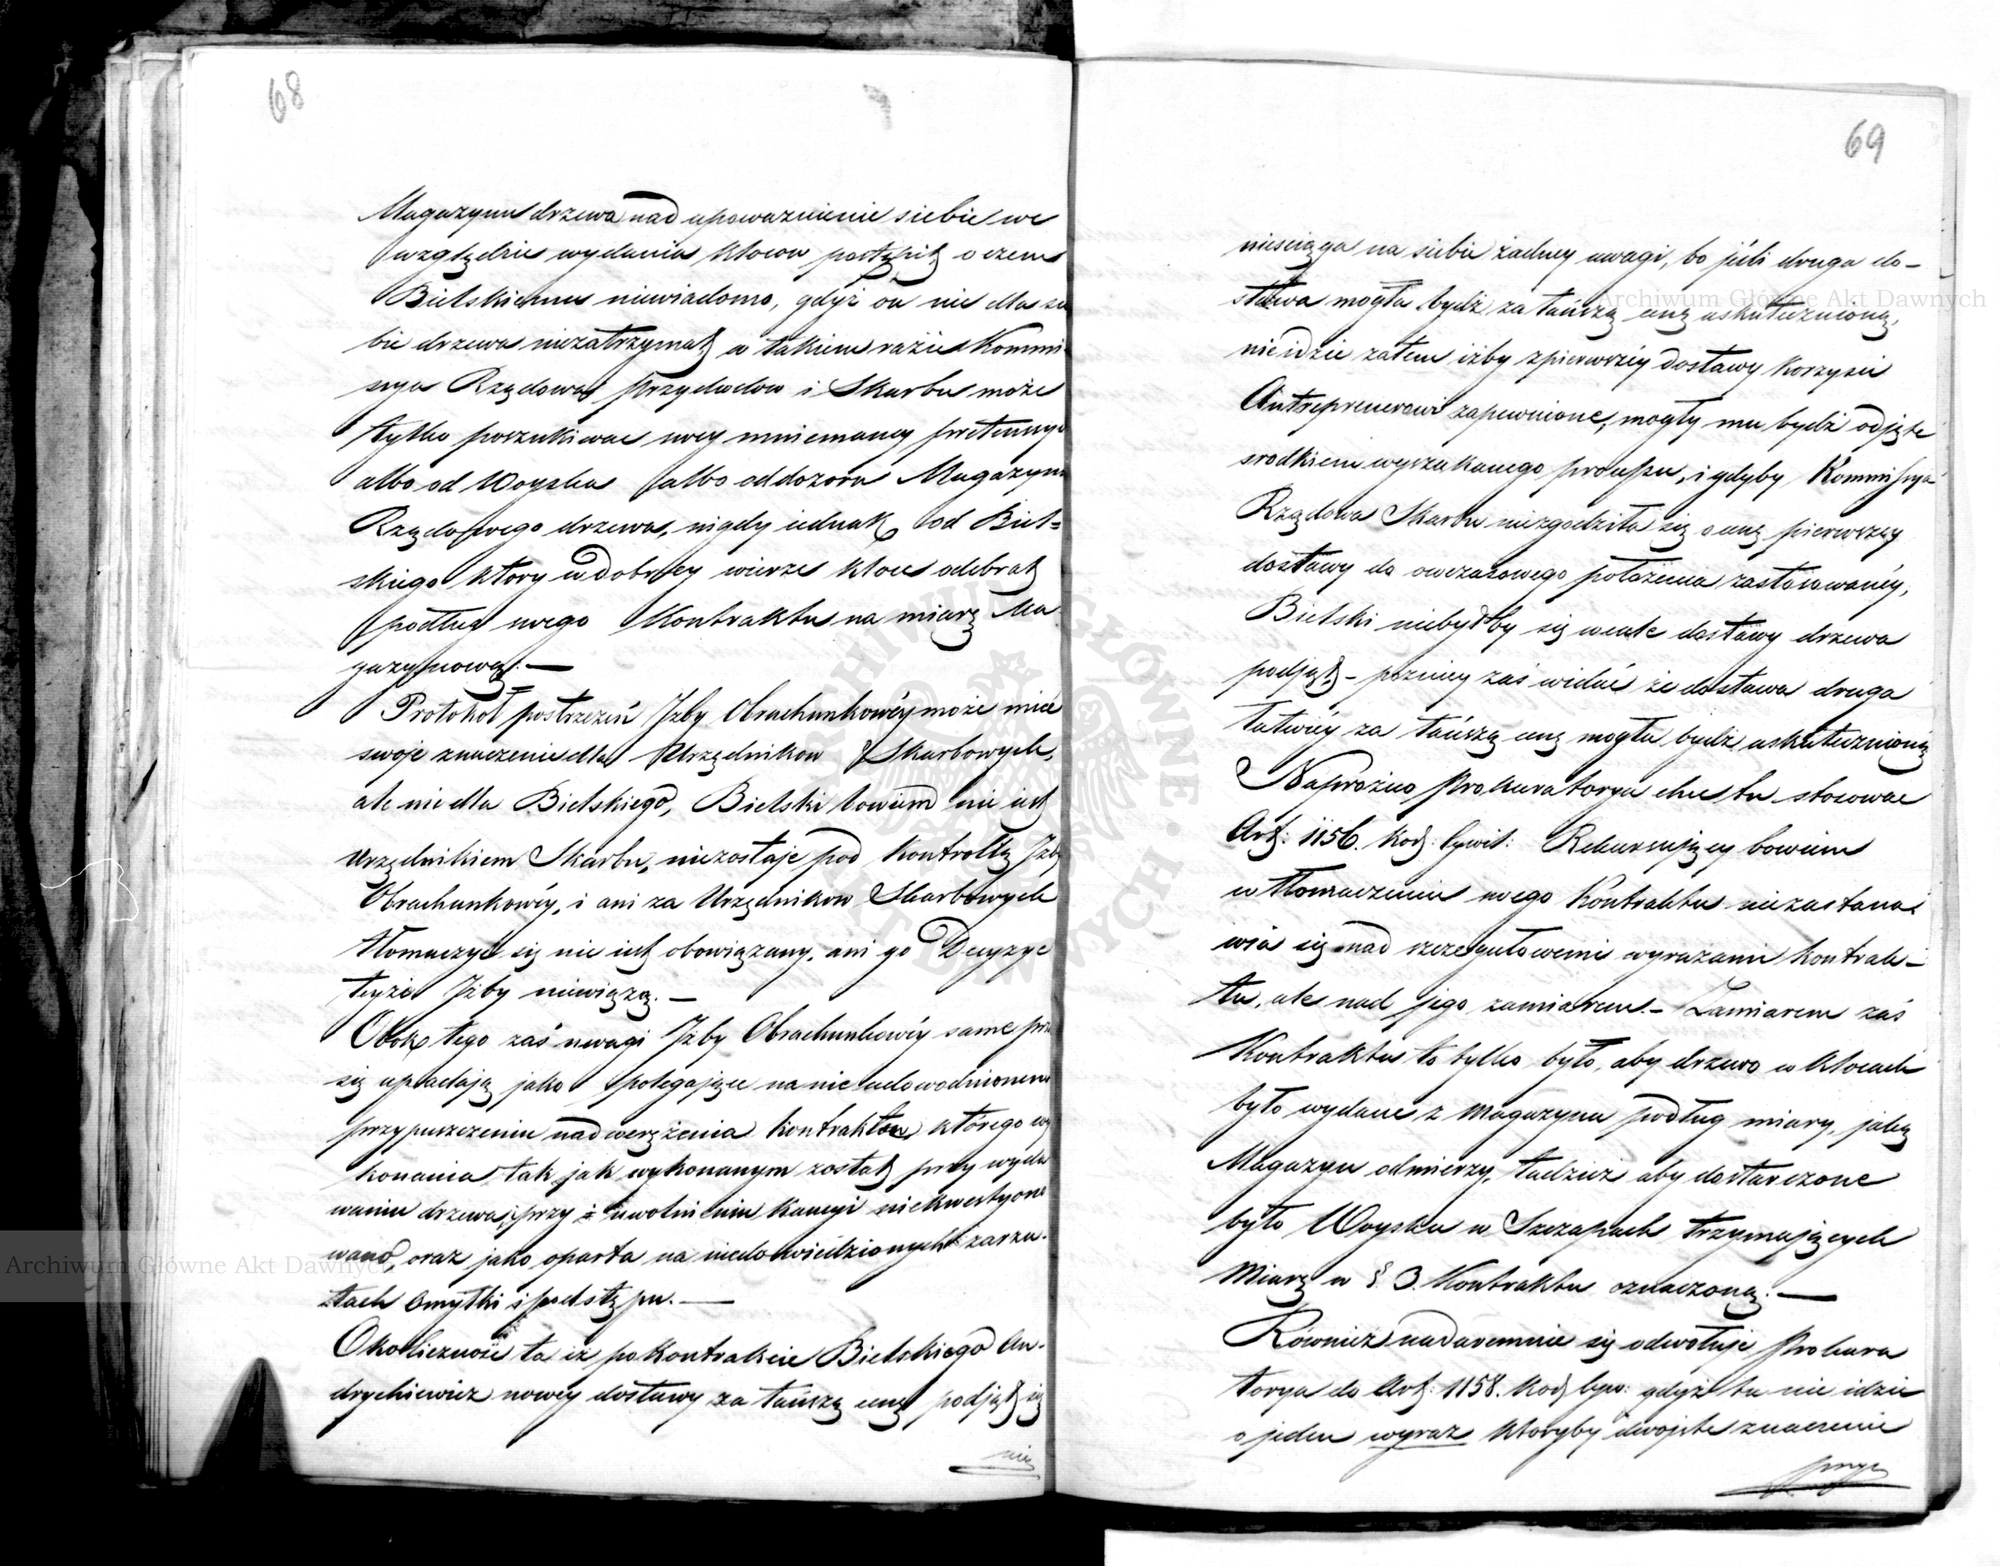 68
Magazynu drzewa nad upoważnienie siebie we
względzie wydania kloców postąpił, o czem
Bielskiemu niewiadomo, gdyż on nie dla sie
bie drzewa niezatrzymał, w takiem razie Kommi
ssya Rządowa Przychodow i Skarbu może
tylko poszukiwac swey mniemaney pretensyi
albo od Woyska albo od dozoru Magazynu
Rządowego drzewa, nigdy iednak od Biel=
skiego ktory w dobrey wierze kloce odebrał
podług swego Kontraktu na miarę Ma
gazynową. —
Protokoł postrzeżeń Izby Obrachunkowéy może mieć
swoje znaczenie dla Urzędnikow Skarbowych,
ale nie dla Bielskiego, Bielski bowiem nie iest
Urzędnikiem Skarbu, niezostaje pod kontrollą Izby
Obrachunkowéy, i ani za Urzędnikow Skarbowych
tłomaczyć się nie iest obowiązany, ani go Decyzye
teyże Izby niewiążą. —
Obok tego zaś uwagi Izby Obrachunkowéy same przez
się upadają jako polegające na nie udowodnionem
przypuszczeniu nadwerężenia kontraktu, którego wy
konania tak jak wykonanym został, przy wyda
waniu drzewa, przy uwolnieniu kaucyi niekwestyono
wano, oraz jako oparta na niedowiedzionych zarzu-
tach omyłki i podstępu. —
Okoliczność ta iż po kontrakcie Bielskiego An-
drychiewicz nowey dostawy za tańszą cenę podjął się
nie
69
nieściąga na siebie żadney uwagi, bo jeśli druga do-
stawa mogła bydź za tańszą cenę uskutecznioną,
nie idzie zatem iżby z pierwszéy dostawy korzyści
Antreprenerowi zapewnione, mogły mu bydź odjęte
srodkiem wyszukanego processu, i gdyby Kommissya
Rządowa Skarbu niezgodziła się o cenę pierwszey
dostawy do owczasowego położenia zastosowanéy,
Bielski niebyłby się wcale dostawy drzewa
podjął – pozniey zaś widać że dostawa druga
łatwiéy za tańszą cenę mogła bydź uskutecznioną
Naprożno Prokuratorya chce tu stosowac
Art: 1156. Kod: Cywil: Rekursujący bowiem
w tłomaczeniu swego Kontraktu niezastana-
wia się nad szczegułowemi wyrazami kontrak-
tu, ale nad jego zamiarem. – Zamiarem zaś
Kontraktu to tylko było, aby drzewo w klocach
było wydane z Magazynu podług miary, jaką
Magazyn odmierzy, tudzież aby dostarczone
było Woysku w Szczapach trzymających
Miarę w § 3. Kontraktu oznaczoną. —
Rownież nadaremnie się odwołuje Prokura
torya do Art: 1158. Kod Cyw: gdyż tu nie idzie
o jeden wyraz ktoryby dwojste znaczenie
Archiwum Główne Akt Dawnych
Archiwum Główne Akt Dawnych